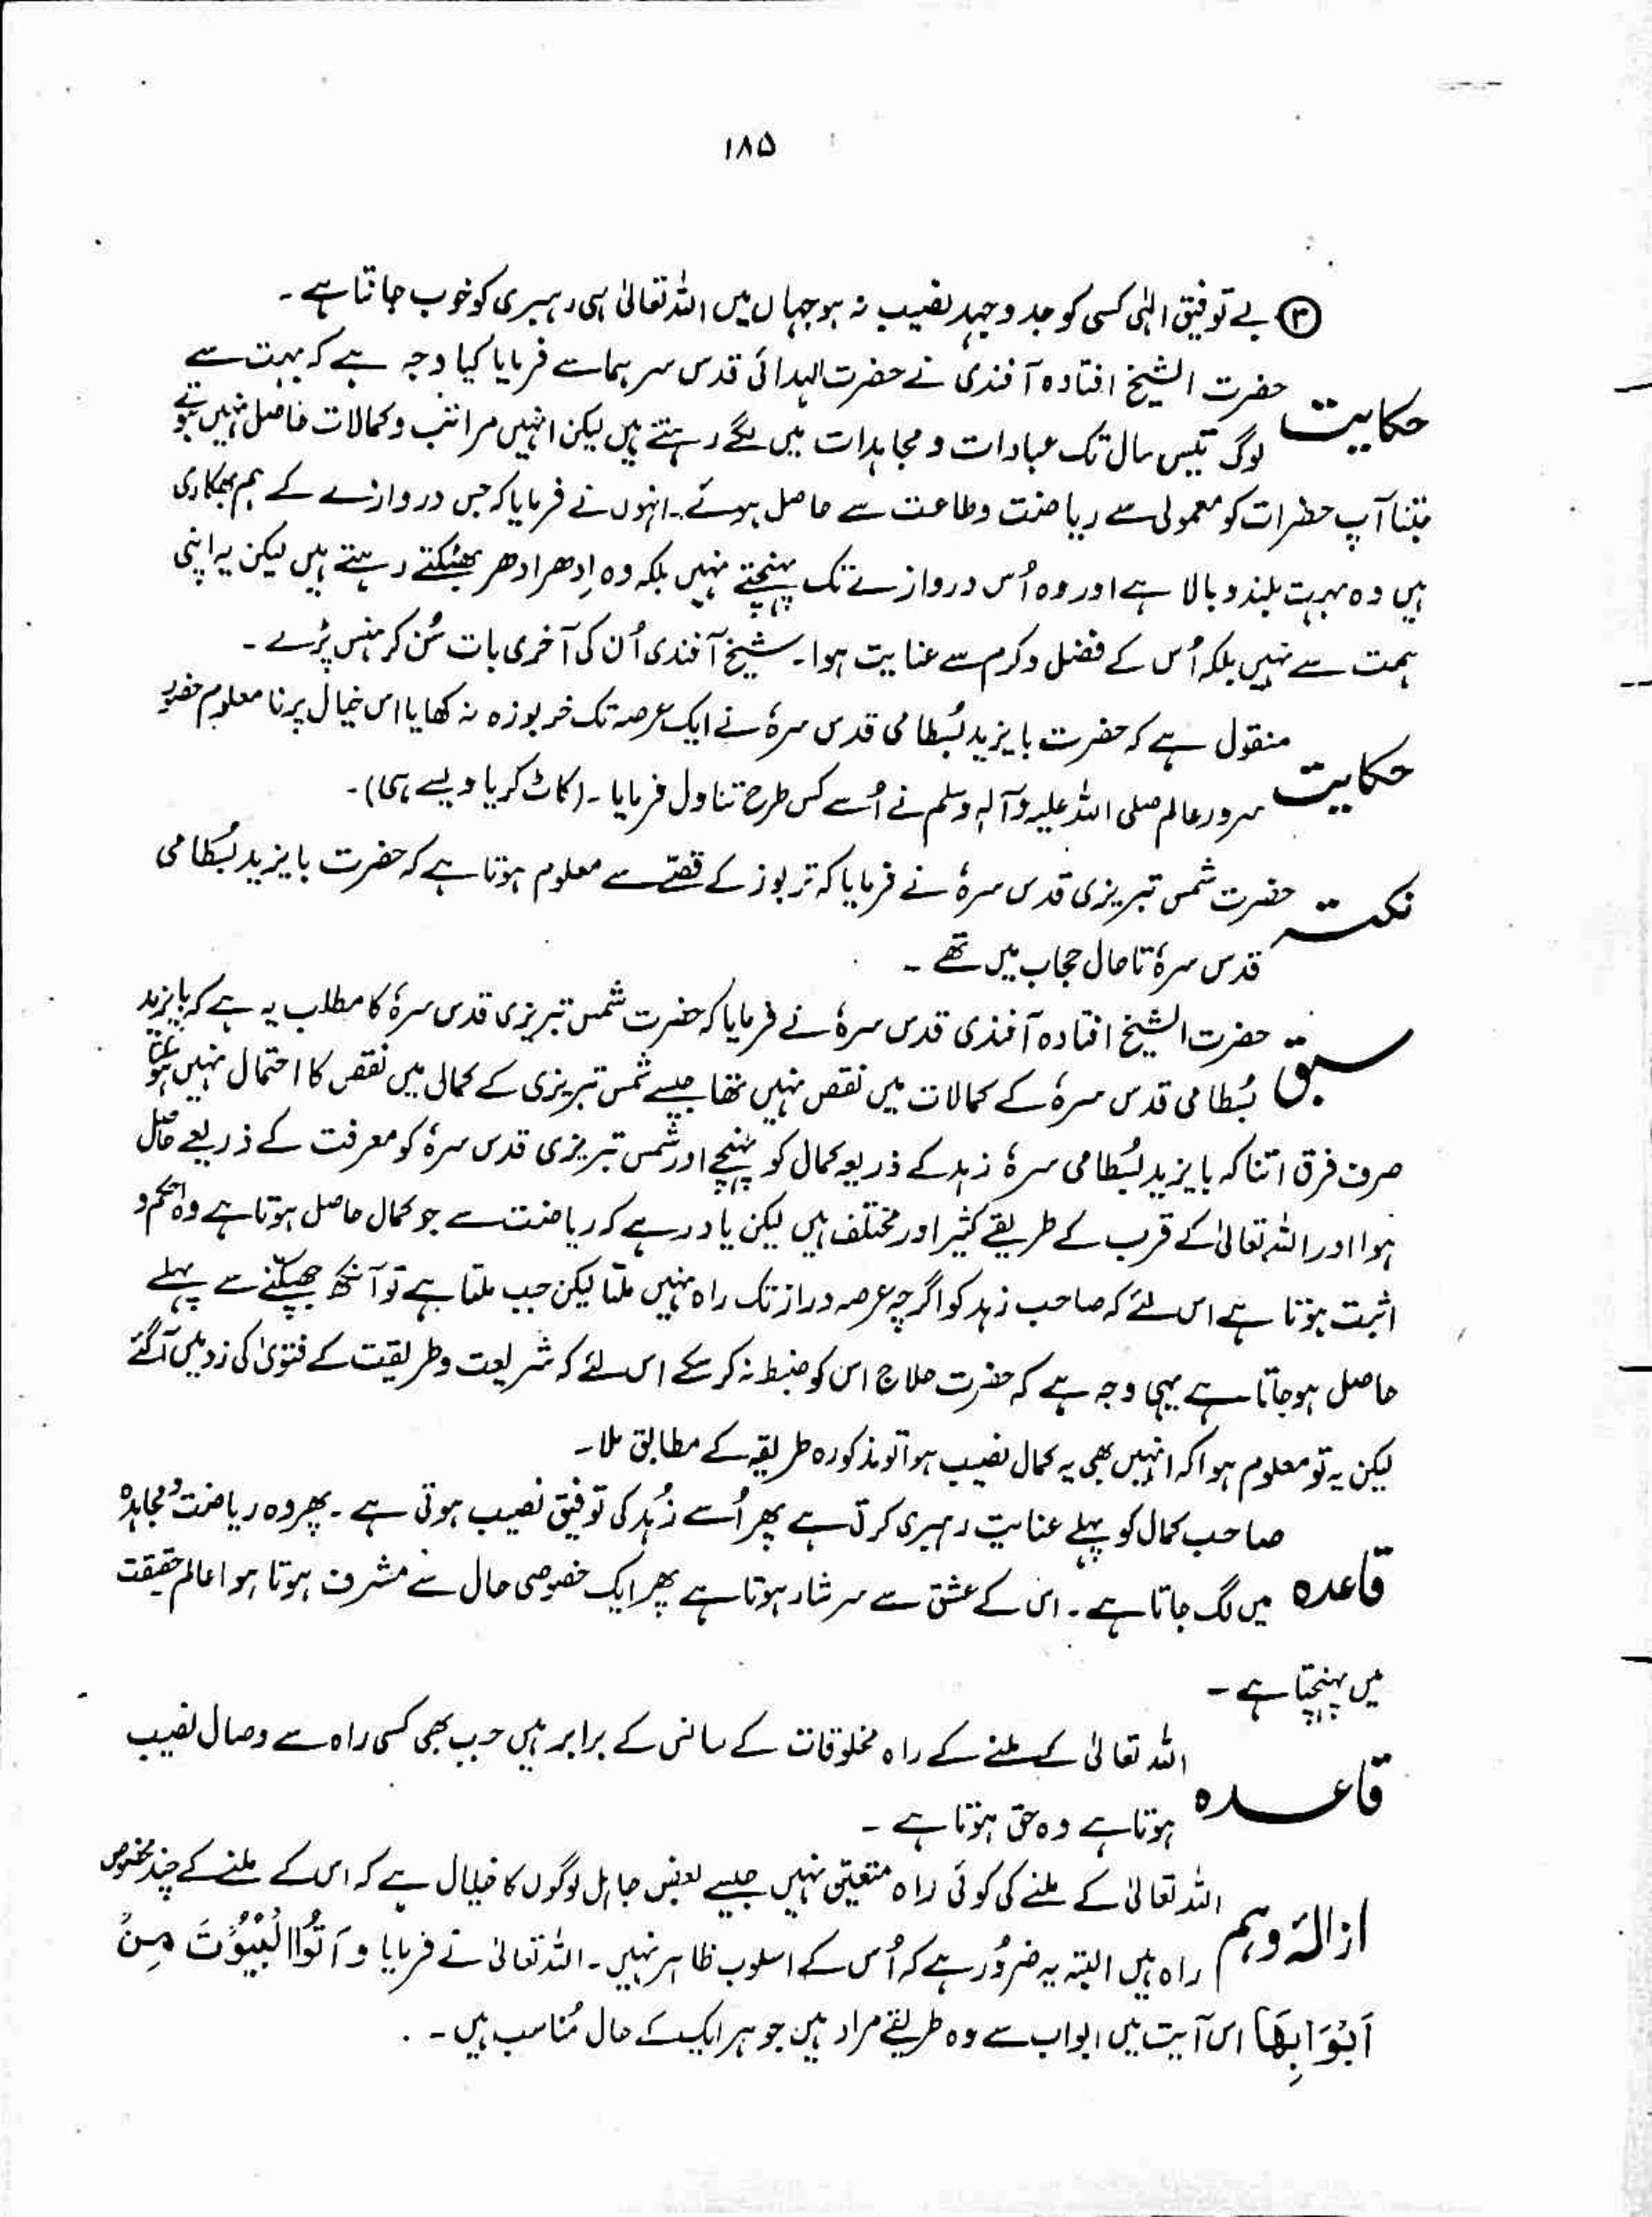 ۱۸۵
③ بے توفیق الہٰی کسی کو جد و جہد نصیب نہ ہو جہاں میں اللہ تعالیٰ ہی رہبری کو خوب جانتا ہے ۔
حکایت حضرت الشیخ افتادہ آفندی نے حضرت الہدائی قدس سرہما سے فرمایا کیا وجہ ہے کہ بہت سے
لوگ تیس سال تک عبادات و مجاہدات میں لگے رہتے ہیں لیکن انہیں مراتب و کمالات حاصل نہیں ہوتے
جتنا آپ حضرات کو معمولی سے ریاضت و طاعت سے حاصل ہوئے ۔ انہوں نے فرمایا کہ جس دروازے کے ہم بھکاری
ہیں وہ بہت بلند و بالا ہے اور وہ اُس دروازے تک پہنچتے نہیں بلکہ وہ اِدھر ادھر بھٹکتے رہتے ہیں لیکن یہ اپنی
ہمت سے نہیں بلکہ اُس کے فضل و کرم سے عنایت ہوا ۔ شیخ آفندی اُن کی آخری بات سُن کر ہنس پڑے ۔
حکایت منقول ہے کہ حضرت بایزید بُسطامی قدس سرہٗ نے ایک عرصہ تک خربوزہ نہ کھایا اس خیال پر نا معلوم حضور
سرور عالم صلی اللہ علیہ وآلہٖ وسلم نے اُسے کس طرح تناول فرمایا ۔ (کاٹ کر یا ویسے ہی) ۔
نکتہ حضرت شمس تبریزی قدس سرہٗ نے فرمایا کہ تربوز کے قصّے سے معلوم ہوتا ہے کہ حضرت بایزید بُسطامی
قدس سرہٗ تاحال حجاب میں تھے ۔
سبق حضرت الشیخ افتادہ آفندی قدس سرہٗ نے فرمایا کہ حضرت شمس تبریزی قدس سرہٗ کا مطلب یہ ہے کہ بایزید
بُسطامی قدس سرہٗ کے کمالات میں نقص نہیں تھا جیسے شمس تبریزی کے کمال میں نقص کا احتمال نہیں ہو سکتا
صرف فرق اتنا کہ بایزید بُسطامی سرہٗ زہد کے ذریعہ کمال کو پہنچے اور شمس تبریزی قدس سرہٗ کو معرفت کے ذریعے حاصل
ہوا اور اللہ تعالیٰ کے قرب کے طریقے کثیر اور مختلف ہیں لیکن یاد رہے کہ ریاضت سے جو کمال حاصل ہوتا ہے وہ احکم و
اثبت ہوتا ہے اس لئے کہ صاحب زہد کو اگرچہ عرصہ دراز تک راہ نہیں ملتا لیکن جب ملتا ہے تو آنکھ جھپکنے سے پہلے
حاصل ہو جاتا ہے یہی وجہ ہے کہ حضرت حلاج اس کو ضبط نہ کر سکے اس لئے کہ شریعت و طریقت کے فتویٰ کی زد میں آگئے
لیکن یہ تو معلوم ہوا کہ انہیں بھی یہ کمال نصیب ہوا تو مذکورہ طریقہ کے مطابق ملا ۔
قاعدہ صاحب کمال کو پہلے عنایت رہبری کرتی ہے پھر اُسے زُہد کی توفیق نصیب ہوتی ہے ۔ پھر وہ ریاضت و مجاہدہ
میں لگ جاتا ہے ۔ اس کے عشق سے سرشار ہوتا ہے پھر ایک خصوصی حال سے مشرف ہوتا ہوا عالم حقیقت
میں پہنچتا ہے ۔
قاعدہ اللہ تعالیٰ کے ملنے کے راہ مخلوقات کے سانس کے برابر ہیں جب بھی کسی راہ سے وصال نصیب
ہوتا ہے وہ حق ہوتا ہے ۔
ازالۂ وہم اللہ تعالیٰ کے ملنے کی کوئی راہ متعیّن نہیں جیسے بعض جاہل لوگوں کا خیال ہے کہ اس کے ملنے کے چند مخصوص
راہ ہیں البتہ یہ ضرُور ہے کہ اُس کے اسلوب ظاہر نہیں ۔ اللہ تعالیٰ نے فرمایا وَآتُوا الْبُيُوْتَ مِنْ
اَبْوَابِهَا اس آیت میں ابواب سے وہ طریقے مراد ہیں جو ہر ایک کے حال مُناسب ہیں ۔